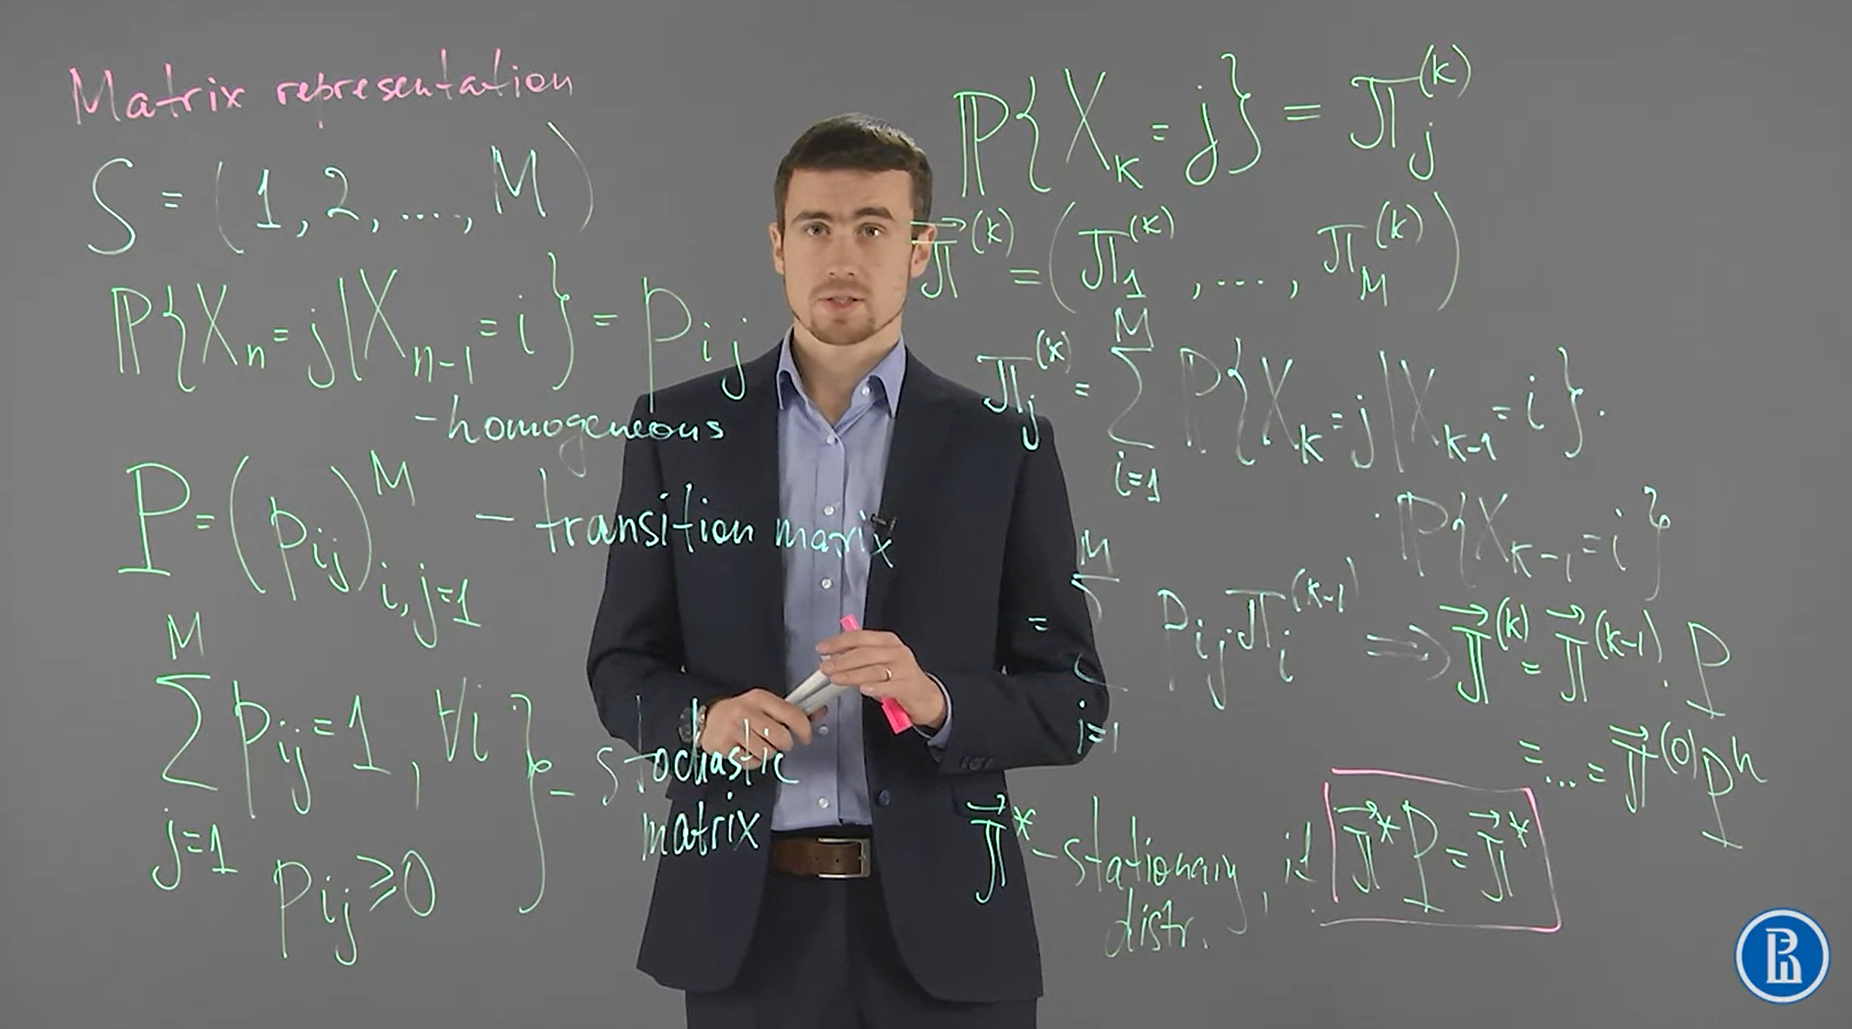 Matrix representation
S = (1, 2, ...., M)
ℙ{X_n = j | X_{n-1} = i} = p_{ij}
- homogeneous
P = (p_{ij})^M_{i,j=1} - transition matrix
∑_{j=1}^{M} p_{ij} = 1, ∀i
p_{ij} ⩾ 0
} - stochastic
matrix
ℙ{X_k = j} = π_j^{(k)}
π⃗^{(k)} = (π_1^{(k)}, ...., π_M^{(k)})
π_j^{(k)} = ∑_{i=1}^{M} ℙ{X_k = j | X_{k-1} = i} ·
· ℙ{X_{k-1} = i}
= ∑_{i=1}^{M} p_{ij} π_i^{(k-1)} ⇒ π⃗^{(k)} = π⃗^{(k-1)} · P
= ... = π⃗^{(0)} P^n
π⃗* - stationary distr., if π⃗* P = π⃗*